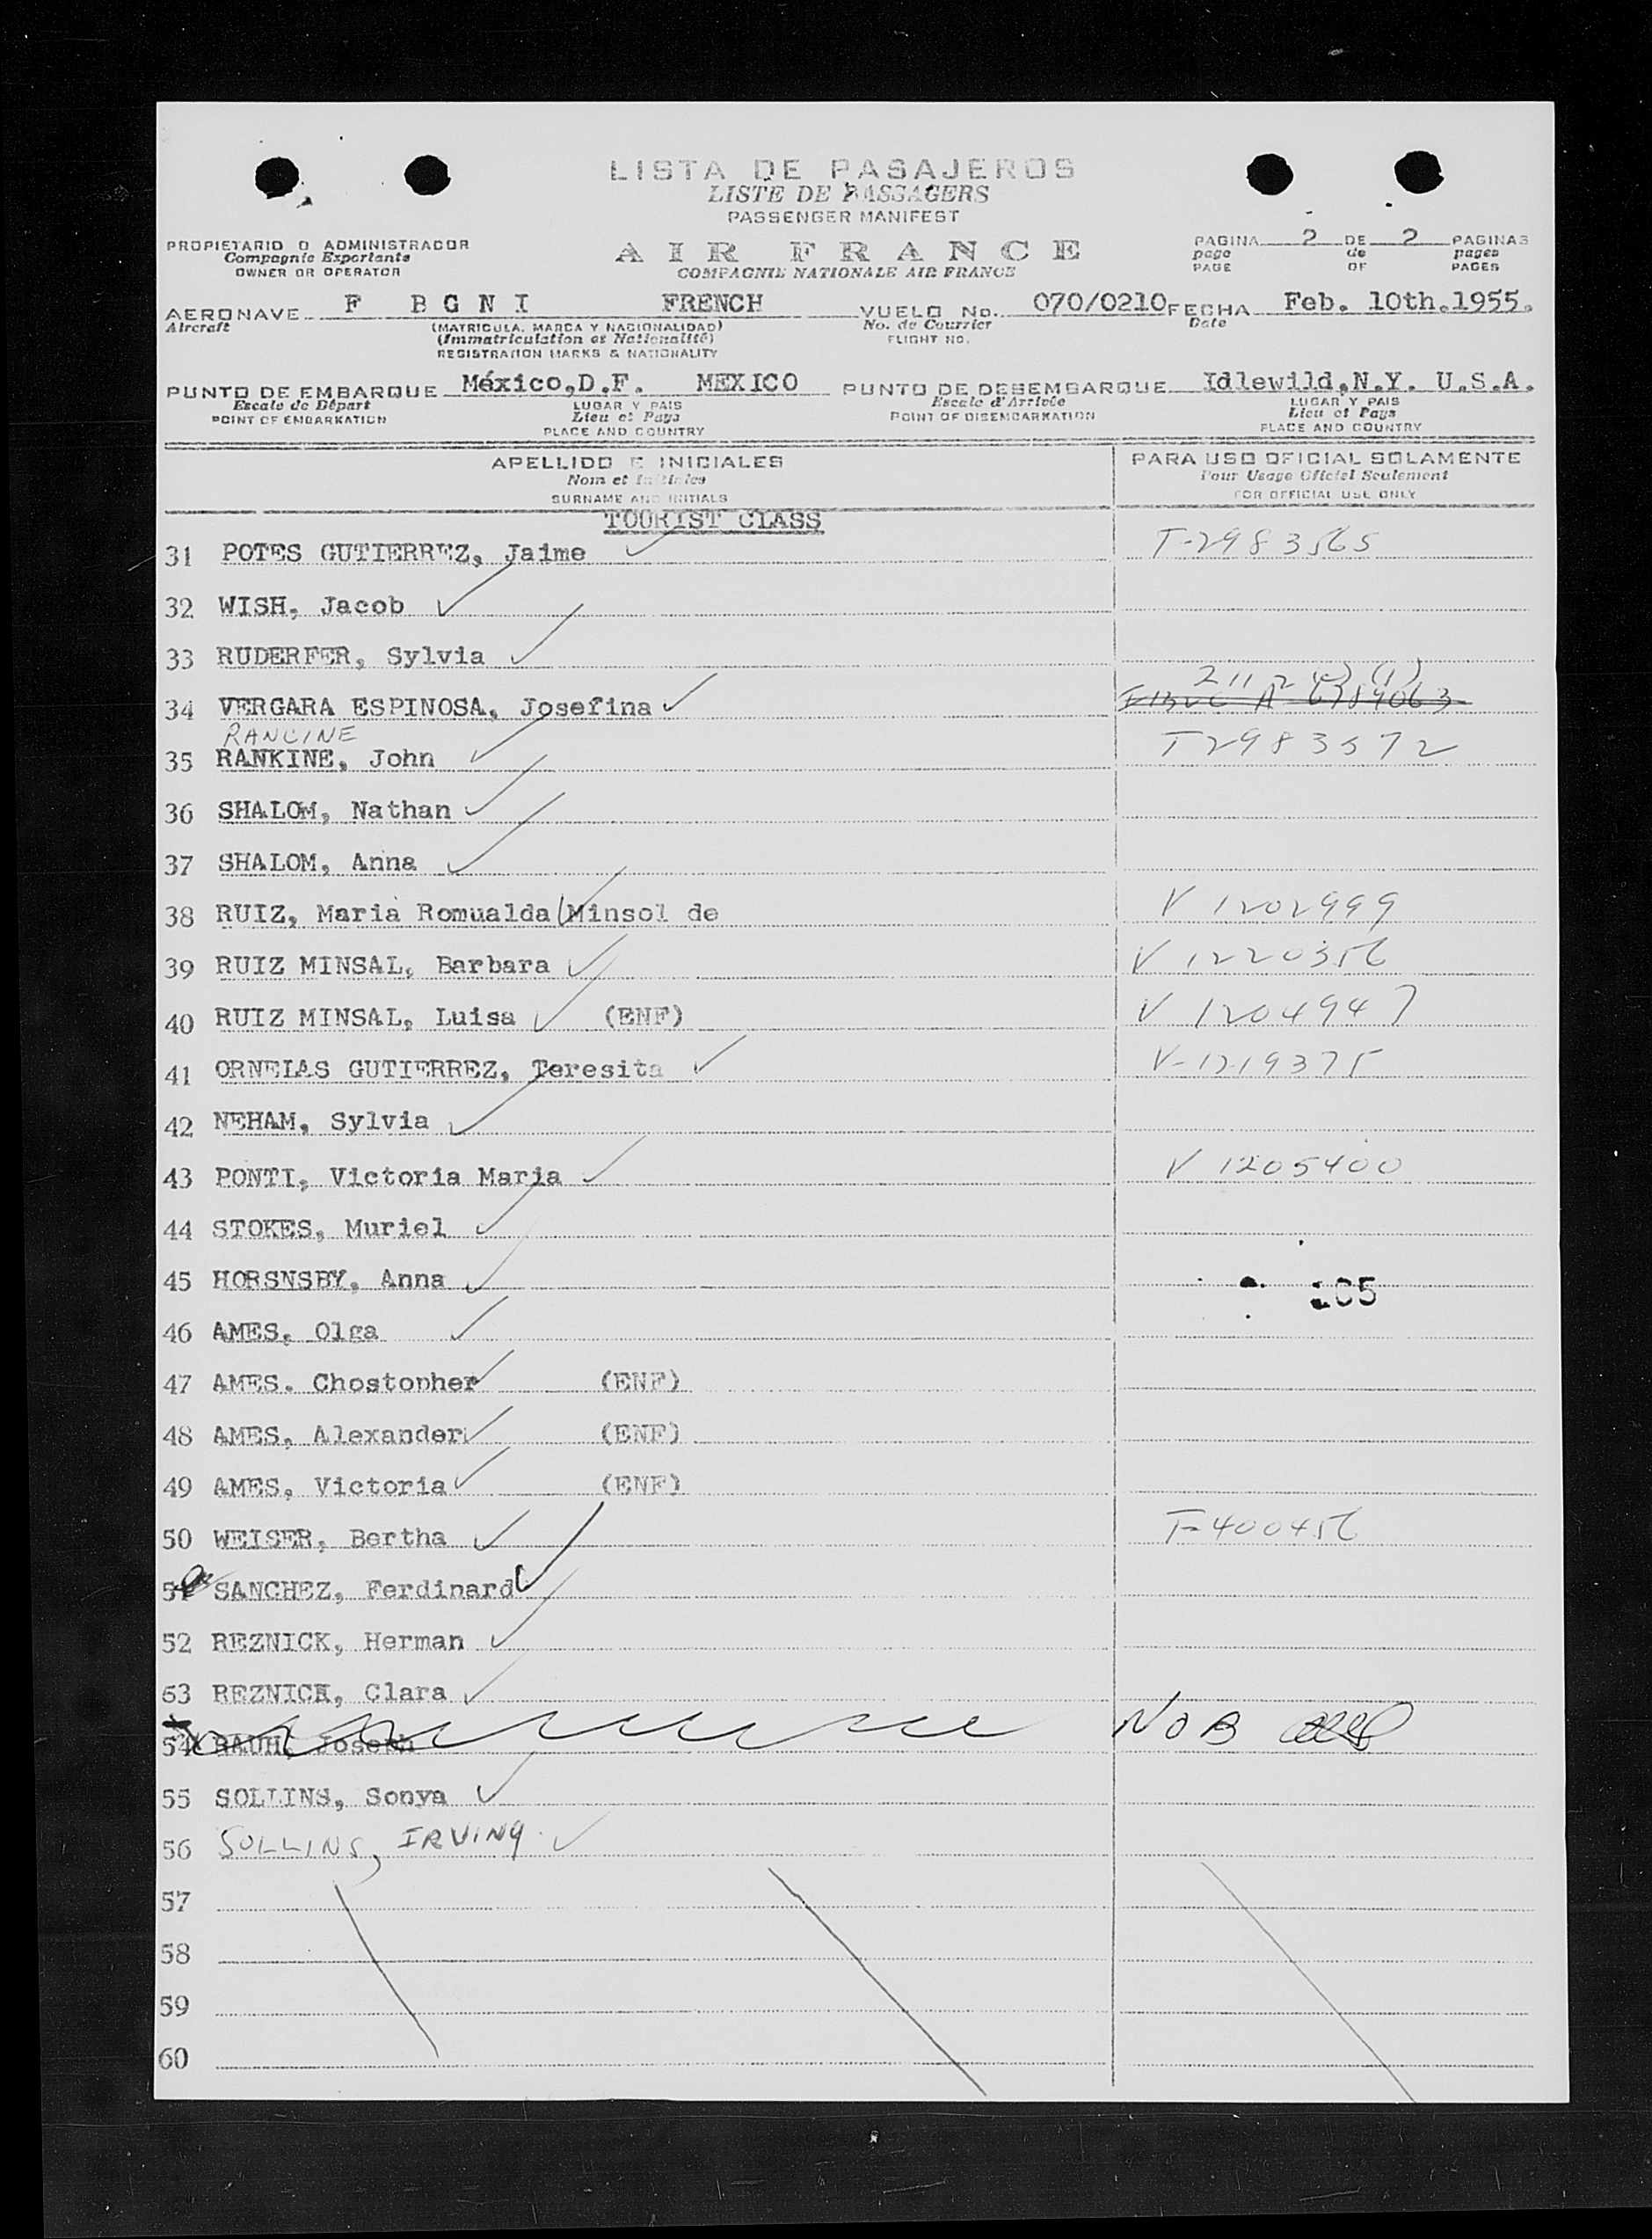 LISTA DE PASAJEROS
LISTE DE PASSAGERS
PASSENGER MANIFEST
PROPIETARIO O ADMINISTRADOR
Compagnie Exportante
OWNER OR OPERATOR
AIR FRANCE
COMPAGNIE NATIONALE AIR FRANCE
PAGINA 2 DE 2 PAGINAS
page de pages
PAGE OF PAGES
AERONAVE F BGNI FRENCH VUELO No. 070/0210 FECHA Feb. 10th.1955.
Aircraft (MATRICULA, MARCA Y NACIONALIDAD) No. de Courrier Date
(Immatriculation et Nationalité) FLIGHT NO.
REGISTRATION MARKS & NATIONALITY
PUNTO DE EMBARQUE México,D.F. MEXICO PUNTO DE DESEMBARQUE Idlewild,N.Y. U.S.A.
Escale de Départ LUGAR Y PAIS Escale d'Arrivée LUGAR Y PAIS
POINT OF EMBARKATION Lieu et Pays POINT OF DISEMBARKATION Lieu et Pays
PLACE AND COUNTRY PLACE AND COUNTRY
APELLIDO E INICIALES PARA USO OFICIAL SOLAMENTE
Nom et Initiales Pour Usage Officiel Seulement
SURNAME AND INITIALS FOR OFFICIAL USE ONLY
TOURIST CLASS
31 POTES GUTIERREZ, Jaime T-2983565
32 WISH, Jacob
33 RUDERFER, Sylvia
34 VERGARA ESPINOSA, Josefina
RANCINE
35 RANKINE, John T2983572
36 SHALOM, Nathan
37 SHALOM, Anna
38 RUIZ, Maria Romualda Minsol de V 1202999
39 RUIZ MINSAL, Barbara V 1220356
40 RUIZ MINSAL, Luisa (ENF) V 1204947
41 ORNELAS GUTIERREZ, Teresita V-1219375
42 NEHAM, Sylvia
43 PONTI, Victoria Maria V 1205400
44 STOKES, Muriel
45 HORSNSBY, Anna 105
46 AMES, Olga
47 AMES. Chostopher (ENF)
48 AMES, Alexander (ENF)
49 AMES, Victoria (ENF)
50 WEISER, Bertha T-400456
51 SANCHEZ, Ferdinard
52 REZNICK, Herman
53 REZNICK, Clara
54 RAUH, Joseph NOB
55 SOLLINS, Sonya
56 SOLLINS, IRVING
57
58
59
60